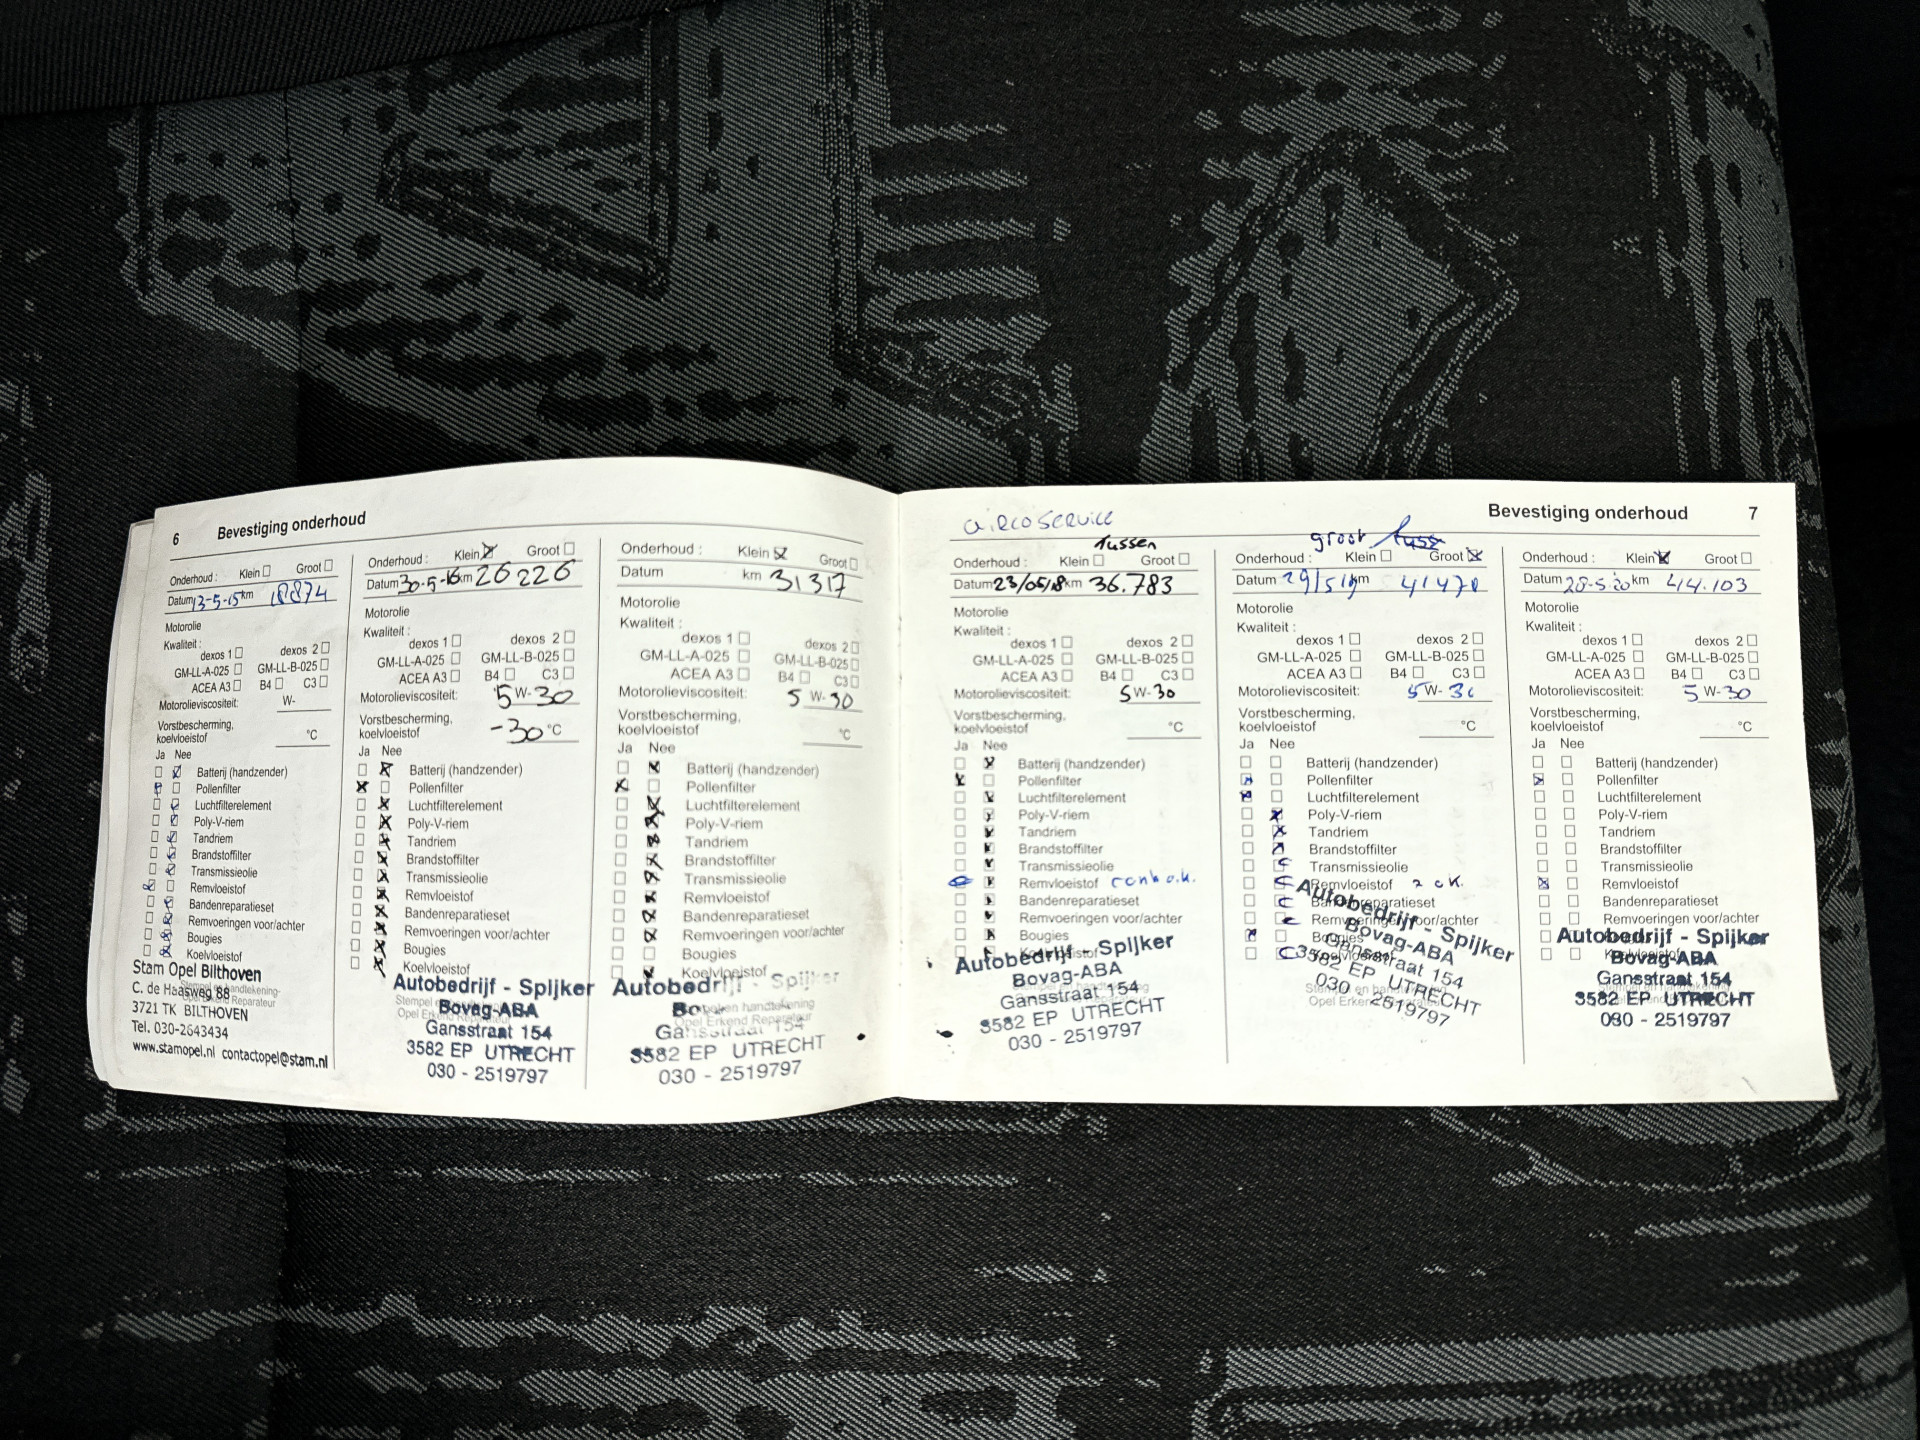 6 Bevestiging onderhoud
Onderhoud : Klein Groot
Datum 13-5-15 km 18874
Motorolie
Kwaliteit :
dexos 1 dexos 2
GM-LL-A-025 GM-LL-B-025
ACEA A3 B4 C3
Motorolieviscositeit: W-
Vorstbescherming,
koelvloeistof °C
Ja Nee
Batterij (handzender)
Pollenfilter
Luchtfilterelement
Poly-V-riem
Tandriem
Brandstoffilter
Transmissieolie
Remvloeistof
Bandenreparatieset
Remvoeringen voor/achter
Bougies
Koelvloeistof
Stam Opel Bilthoven
C. de Haasweg 88
3721 TK BILTHOVEN
Tel. 030-2643434
www.stamopel.nl contactopel@stam.nl
Onderhoud : Klein Groot
Datum 30-5-16 km 26226
Motorolie
Kwaliteit :
dexos 1 dexos 2
GM-LL-A-025 GM-LL-B-025
ACEA A3 B4 C3
Motorolieviscositeit: 5 W- 30
Vorstbescherming,
koelvloeistof -30 °C
Ja Nee
Batterij (handzender)
Pollenfilter
Luchtfilterelement
Poly-V-riem
Tandriem
Brandstoffilter
Transmissieolie
Remvloeistof
Bandenreparatieset
Remvoeringen voor/achter
Bougies
Koelvloeistof
Autobedrijf - Spijker
Bovag-ABA
Gansstraat 154
3582 EP UTRECHT
030 - 2519797
Onderhoud : Klein Groot
Datum km 31317
Motorolie
Kwaliteit :
dexos 1 dexos 2
GM-LL-A-025 GM-LL-B-025
ACEA A3 B4 C3
Motorolieviscositeit: 5 W- 30
Vorstbescherming,
koelvloeistof °C
Ja Nee
Batterij (handzender)
Pollenfilter
Luchtfilterelement
Poly-V-riem
Tandriem
Brandstoffilter
Transmissieolie
Remvloeistof
Bandenreparatieset
Remvoeringen voor/achter
Bougies
Koelvloeistof
Autobedrijf - Spijker
Gansstraat 154
3582 EP UTRECHT
030 - 2519797
Bevestiging onderhoud 7
airco service
tussen
Onderhoud : Klein Groot
Datum 23/05/18 km 36.783
Motorolie
Kwaliteit :
dexos 1 dexos 2
GM-LL-A-025 GM-LL-B-025
ACEA A3 B4 C3
Motorolieviscositeit: 5W-30
Vorstbescherming,
koelvloeistof °C
Ja Nee
Batterij (handzender)
Pollenfilter
Luchtfilterelement
Poly-V-riem
Tandriem
Brandstoffilter
Transmissieolie
Remvloeistof o.k.
Bandenreparatieset
Remvoeringen voor/achter
Bougies
Autobedrijf - Spijker
Bovag-ABA
Gansstraat 154
3582 EP UTRECHT
030 - 2519797
groot
Onderhoud : Klein Groot
Datum 29/5/19 km 41470
Motorolie
Kwaliteit :
dexos 1 dexos 2
GM-LL-A-025 GM-LL-B-025
ACEA A3 B4 C3
Motorolieviscositeit: 5 W- 30
Vorstbescherming,
koelvloeistof °C
Ja Nee
Batterij (handzender)
Pollenfilter
Luchtfilterelement
Poly-V-riem
Tandriem
Brandstoffilter
Transmissieolie
Remvloeistof ok.
Bandenreparatieset
Remvoeringen voor/achter
Bougies
Autobedrijf - Spijker
Bovag-ABA
Gansstraat 154
3582 EP UTRECHT
030 - 2519797
Onderhoud : Klein Groot
Datum 28-5-20 km 44.103
Motorolie
Kwaliteit :
dexos 1 dexos 2
GM-LL-A-025 GM-LL-B-025
ACEA A3 B4 C3
Motorolieviscositeit: 5 W- 30
Vorstbescherming,
koelvloeistof °C
Ja Nee
Batterij (handzender)
Pollenfilter
Luchtfilterelement
Poly-V-riem
Tandriem
Brandstoffilter
Transmissieolie
Remvloeistof
Bandenreparatieset
Remvoeringen voor/achter
Autobedrijf - Spijker
Bovag-ABA
Gansstraat 154
3582 EP UTRECHT
030 - 2519797